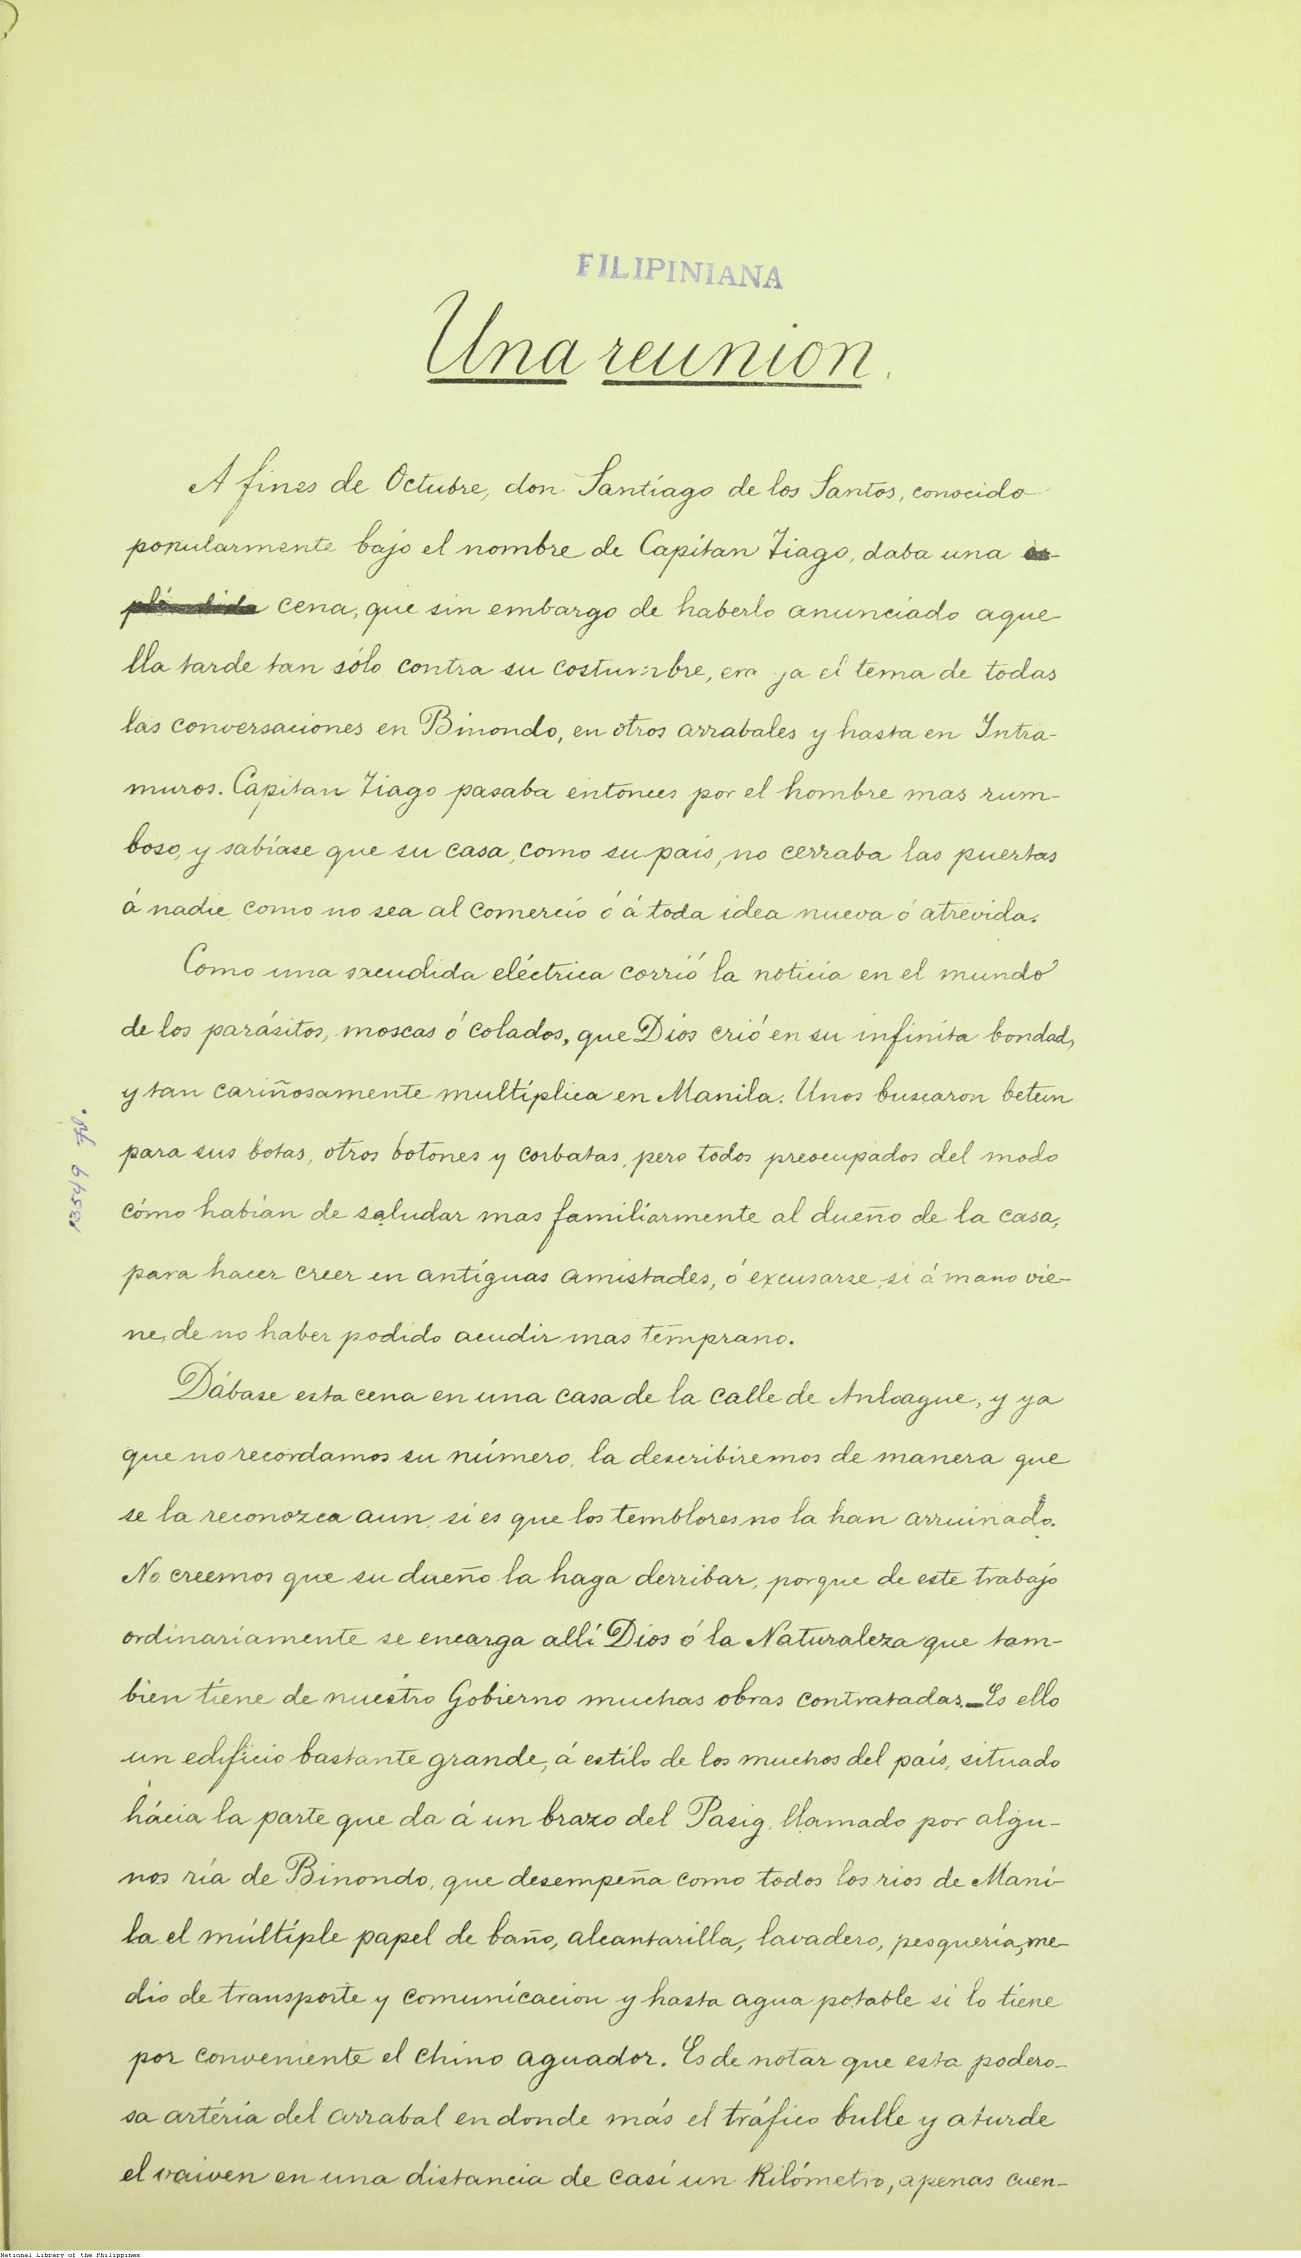 FILIPINIANA
Una reunion.
A fines de Octubre, don Santiago de los Santos, conocido
popularmente bajo el nombre de Capitan Tiago, daba una es-
pléndida cena, que sin embargo de haberlo anunciado aque-
lla tarde tan sólo contra su costumbre, era ya el tema de todas
las conversaciones en Binondo, en otros arrabales y hasta en Intra-
muros. Capitan Tiago pasaba entonces por el hombre mas rum-
boso, y sabíase que su casa, como su país, no cerraba las puertas
á nadie, como no sea al comercio ó á toda idea nueva ó atrevida.
Como una sacudida eléctrica corrió la noticia en el mundo
de los parásitos, moscas ó colados, que Dios crió en su infinita bondad,
y tan cariñosamente multiplica en Manila. Unos buscaron betun
para sus botas, otros botones y corbatas, pero todos preocupados del modo
cómo habían de saludar mas familiarmente al dueño de la casa,
para hacer creer en antiguas amistades, ó excusarse, si á mano vie-
ne, de no haber podido acudir mas temprano.
Dábase esta cena en una casa de la calle de Anloague, y ya
que no recordamos su número, la describiremos de manera que
se la reconozca aun, si es que los temblores no la han arruinado.
No creemos que su dueño la haga derribar, porque de este trabajo
ordinariamente se encarga allí Dios ó la Naturaleza que tam-
bien tiene de nuestro Gobierno muchas obras contratadas._Es ello
un edificio bastante grande, á estilo de los muchos del país, situado
hácia la parte que da á un brazo del Pasig, llamado por algu-
nos ría de Binondo, que desempeña como todos los rios de Mani-
la el múltiple papel de baño, alcantarilla, lavadero, pesquería, me-
dio de transporte y comunicacion y hasta agua potable si lo tiene
por conveniente el chino aguador. Es de notar que esta podero-
sa artéria del arrabal en donde más el tráfico bulle y aturde
el vaiven en una distancia de casi un kilómetro, apenas cuen-
National Library of the Philippines